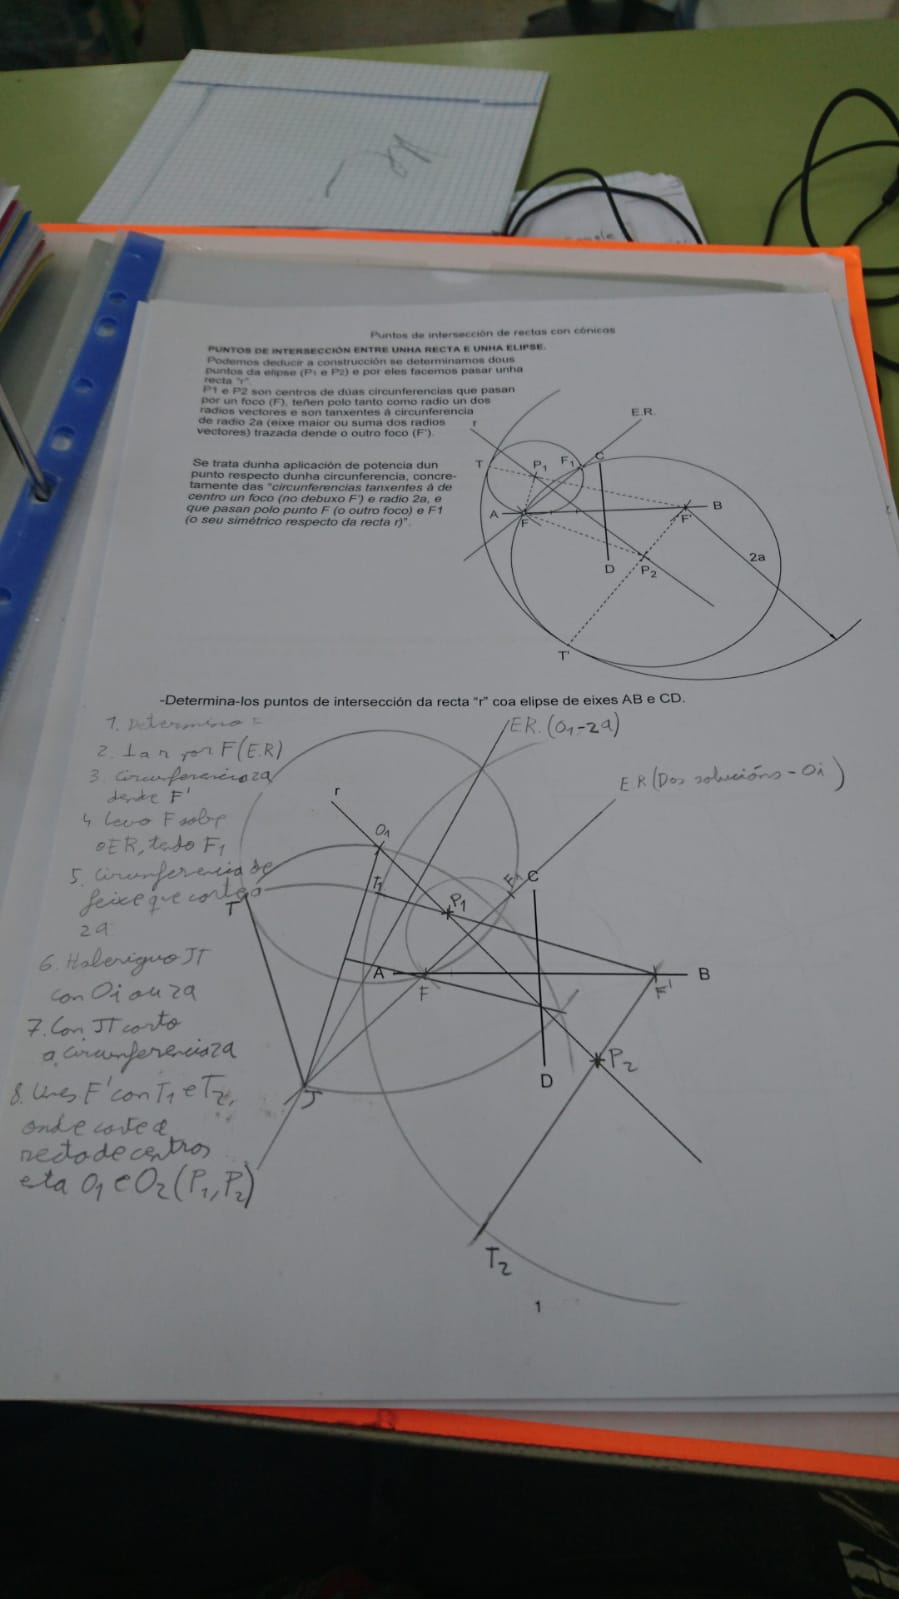 Puntos de intersección de rectas con cónicas
PUNTOS DE INTERSECCIÓN ENTRE UNHA RECTA E UNHA ELIPSE.
Podemos deducir a construcción se determinamos dous
puntos da elipse (P1 e P2) e por eles facemos pasar unha
recta "r".
P1 e P2 son centros de dúas circunferencias que pasan
por un foco (F), teñen polo tanto como radio un dos
radios vectores e son tanxentes á circunferencia
de radio 2a (eixe maior ou suma dos radios
vectores) trazada dende o outro foco (F').
Se trata dunha aplicación de potencia dun
punto respecto dunha circunferencia, concre-
tamente das "circunferencias tanxentes á de
centro un foco (no debuxo F') e radio 2a, e
que pasan polo punto F (o outro foco) e F1
(o seu simétrico respecto da recta r)".
E.R.
r
T
P1
F1
C
A
F
F'
B
D
P2
2a
T'
-Determina-los puntos de intersección da recta "r" coa elipse de eixes AB e CD.
1. Determino F
2. por F (E.R)
3. Circunferencia 2a
dende F'
4. Levo F sobre
o ER, tendo F1
5. Circunferencia de
feixe que corte a
2a
6. JT
con Oi ou 2a
7. Con JT corto
a circunferencia 2a
8. Unes F' con T1 e T2,
onde corte a
recta de centros
esta O1 e O2 (P1, P2)
ER. (O1-2a)
E.R (Dos solucións - Oi)
r
O1
T1
P1
F1
C
T
A
F
F'
B
P2
D
J
T2
1